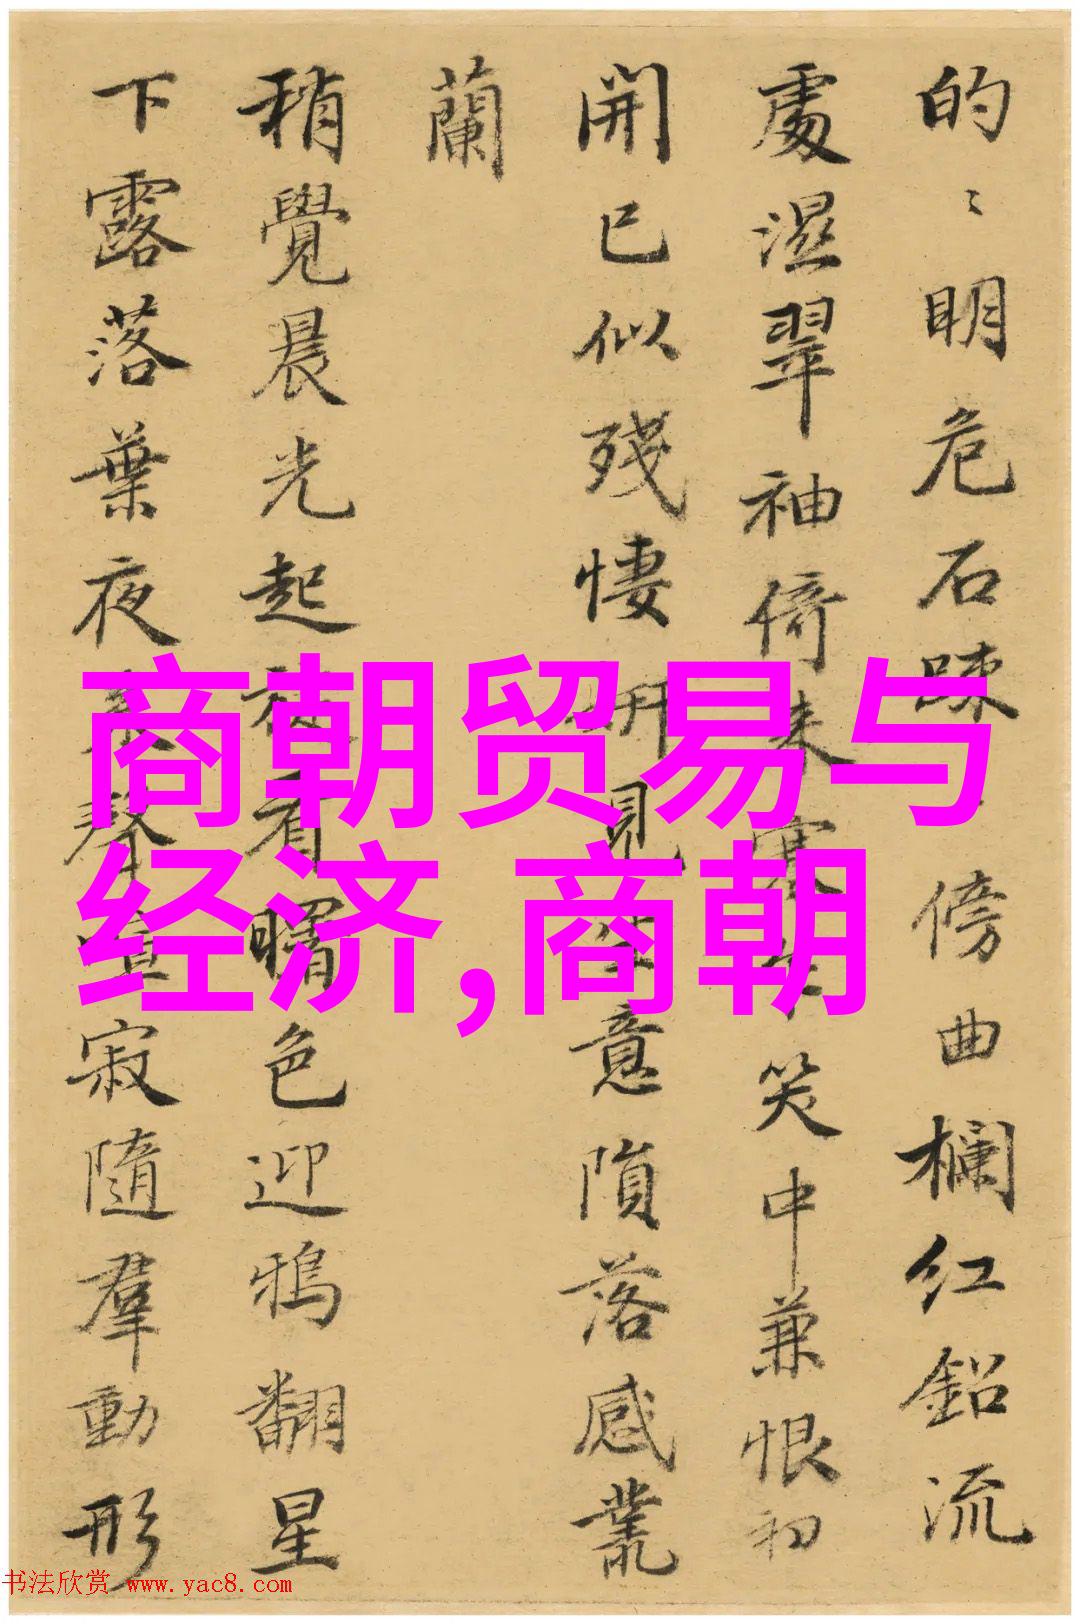 的〻明危石竦 傍曲欄紅鉛流
處濕翠袖倚朱 笑中兼恨初
開已似殘悽 見 意隕落感叢
蘭
稍覺晨光起 看曙色迎鴉翻星
下露落葉夜 聲 寂隨羣動形
商朝贸易与
经济,商朝
书法欣赏 www.yac8.com